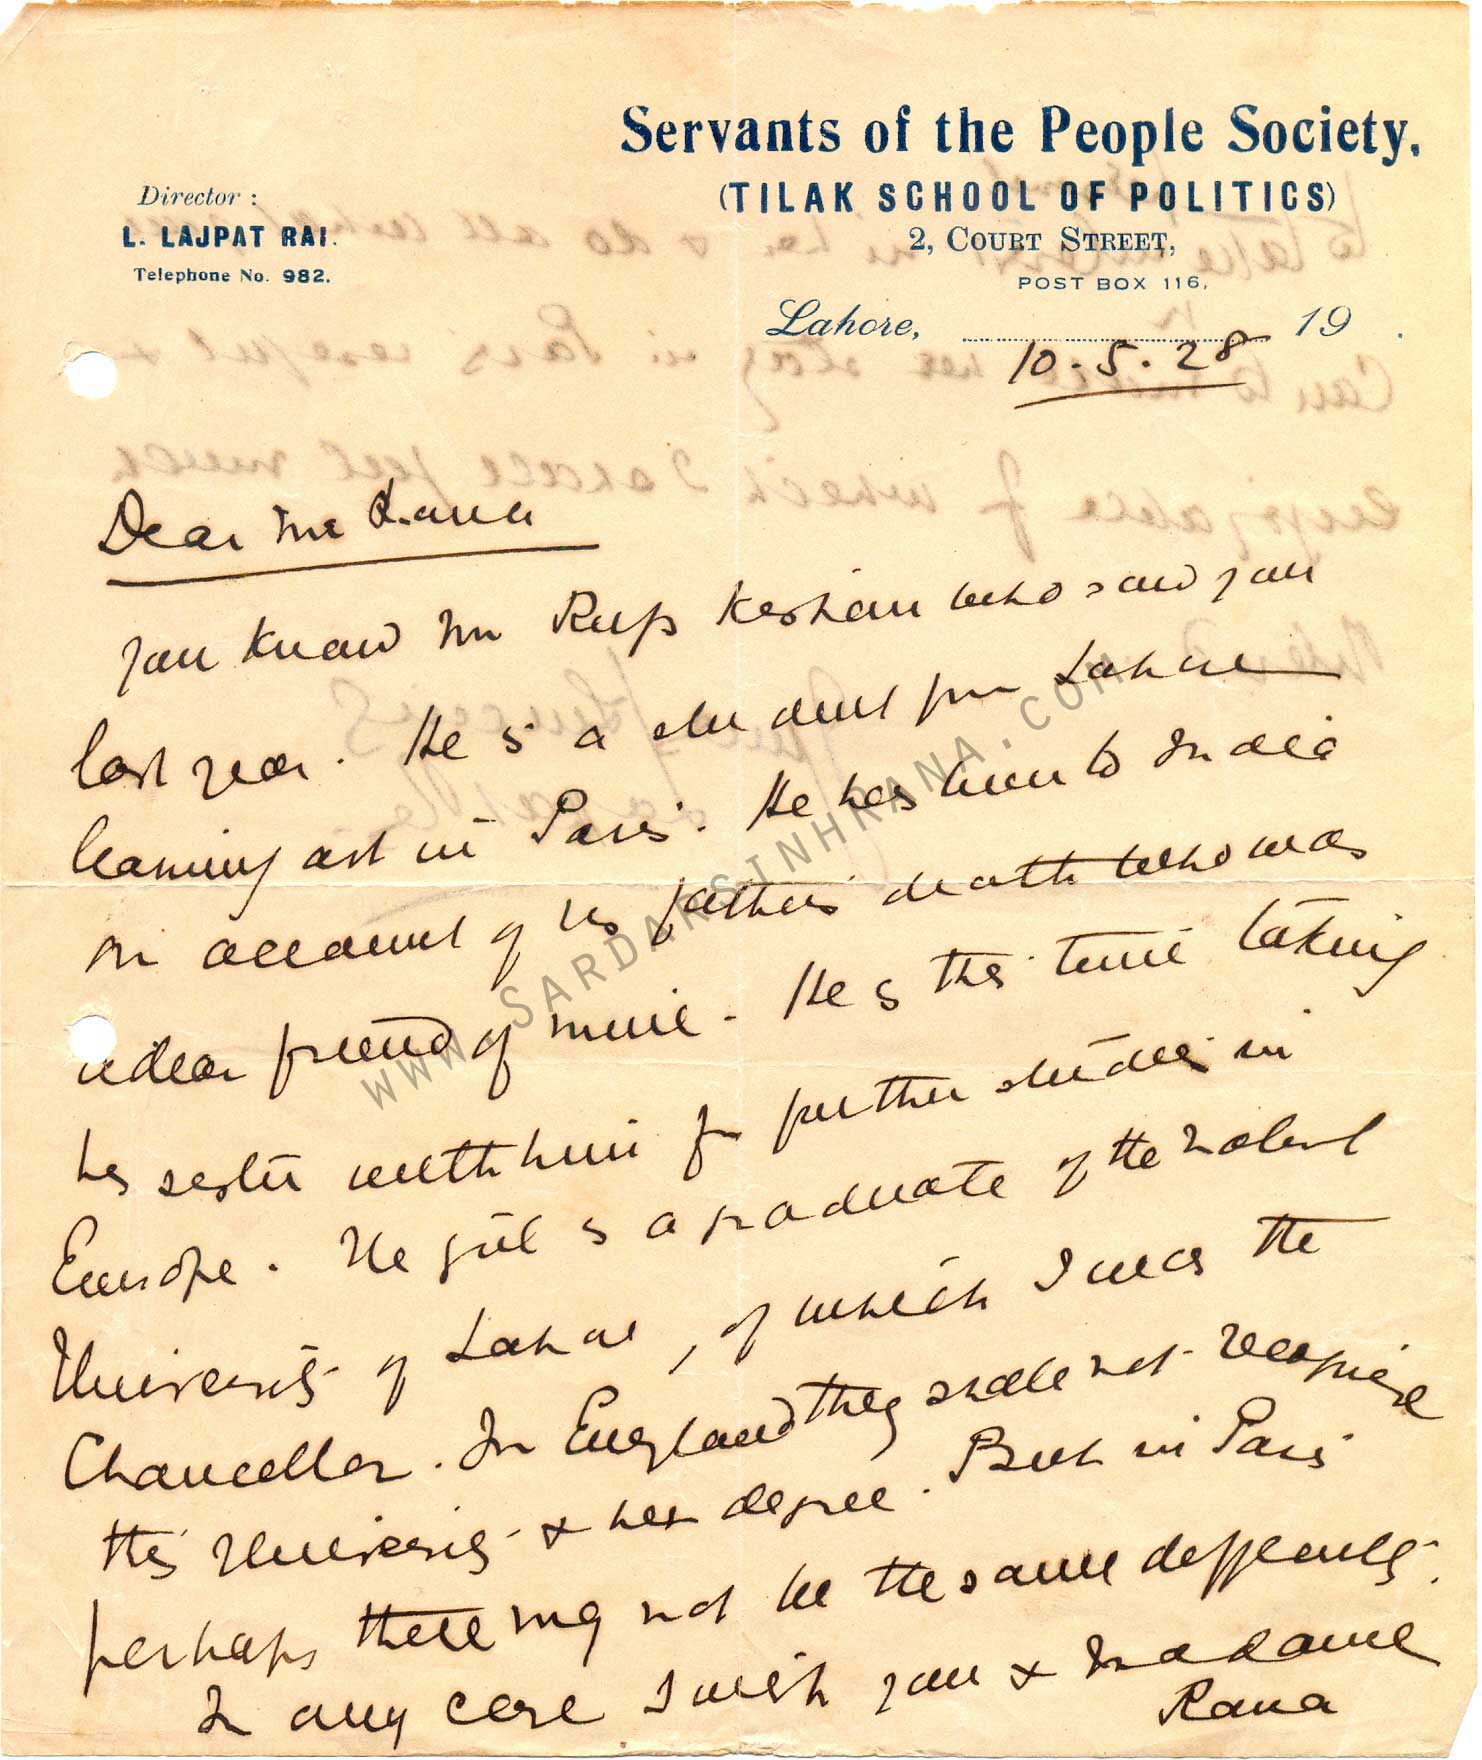 Servants of the People Society,
(TILAK SCHOOL OF POLITICS)
2, COURT STREET,
POST BOX 116,
Director :
L. LAJPAT RAI.
Telephone No. 982.
Lahore, 10.5.28 19 .
Dear Mr Rana
You know Mr Rup Keshan who saw you
last year. He is a student from Lahore
learning art in Paris. He has been to India
on account of his father's death who was
a dear friend of mine. He is this time taking
his sister with him for further studies in
Europe. The girl is a graduate of the National
University of Lahore, of which I was the
Chancellor. In England they shall not recognise
this University & her degree. But in Paris
perhaps there may not be the same difficulty.
In any case I wish you & Madame
Rana
WWW.SARDARSINHRANA.COM